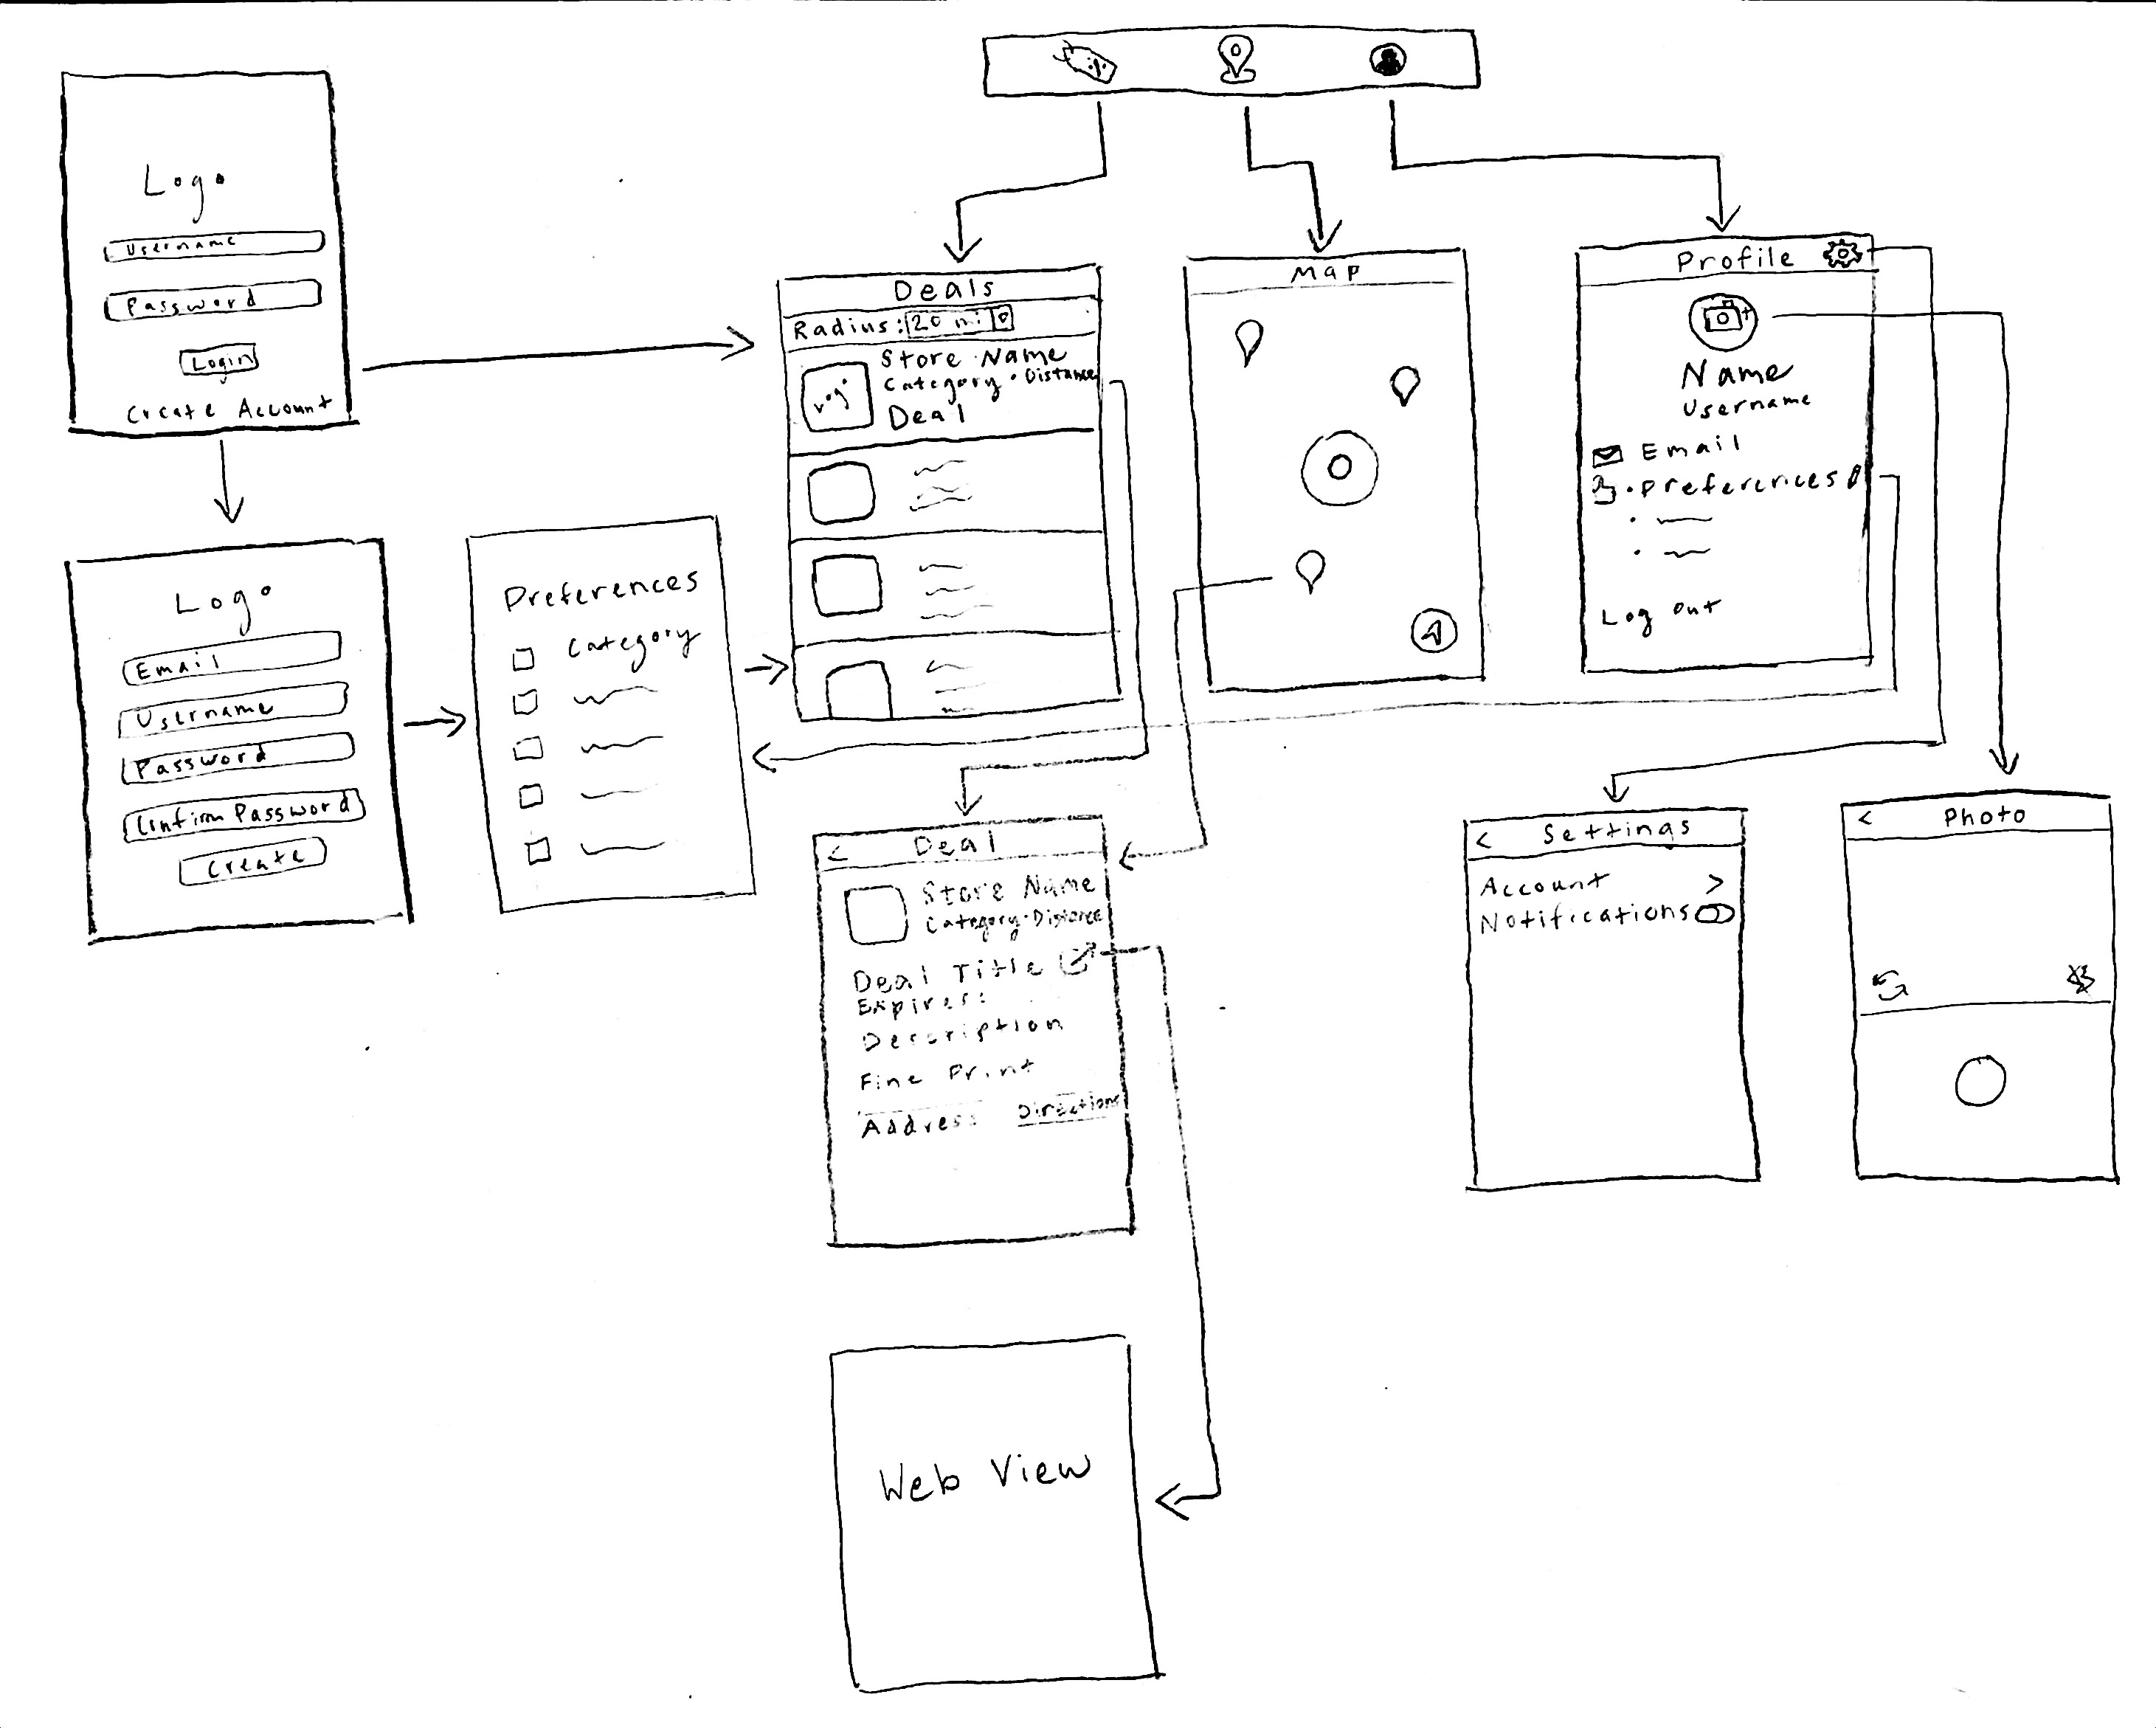 Logo
Username
Password
Login
Create Account
Logo
Email
Username
Password
Confirm Password
Create
Preferences
Category
Deals
Radius: 20 mi
Store Name
Category · Distance
Deal
Map
Profile
Name
Username
Email
Preferences
Log Out
< Deal
Store Name
Category · Distance
Deal Title
Expires:
Description
Fine Print
Address Directions
< Settings
Account >
Notifications
< Photo
Web View